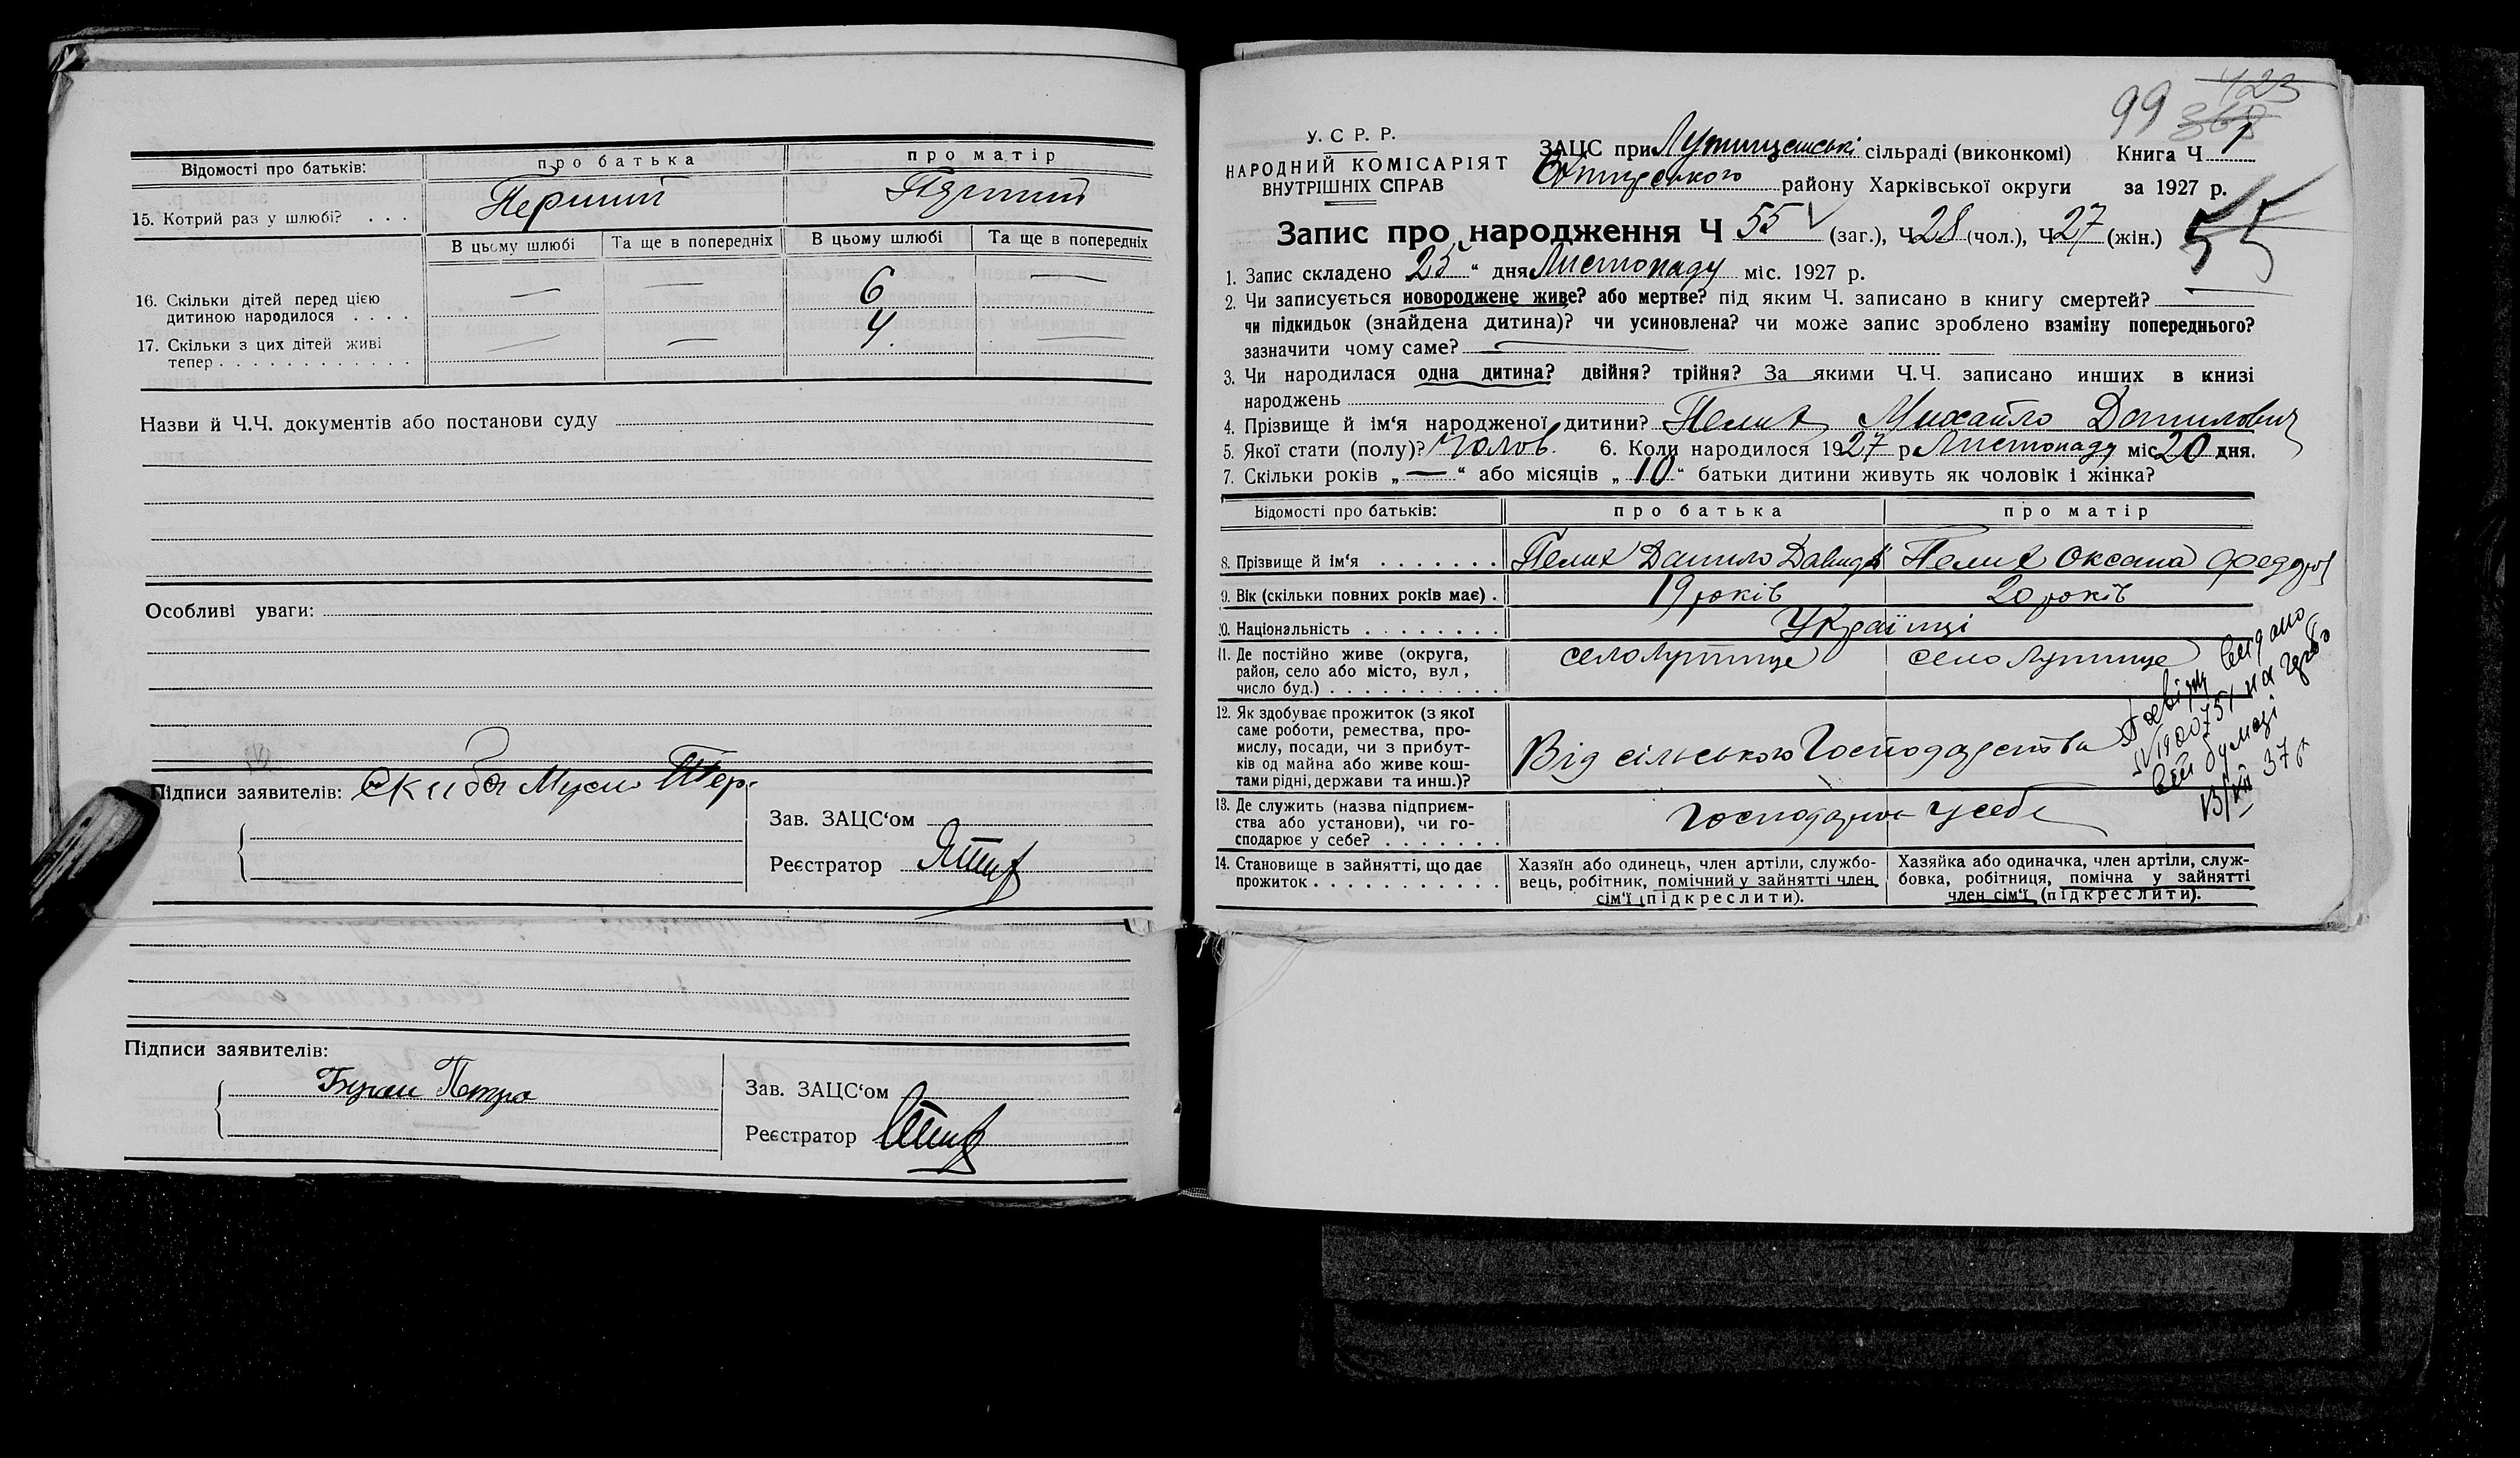 Відомості про батьків:
про батька
про матір
15. Котрий раз у шлюбі? . . .
Перший
Перший
В цьому шлюбі
Та ще в попередніх
В цьому шлюбі
Та ще в попередніх
16. Скільки дітей перед цією
дитиною народилося . . . .
— — 6 —
17. Скільки з цих дітей живі
тепер . . . . . . . . . . . .
— — 4. —
Назви й Ч.Ч. документів або постанови суду
Особливі уваги:
Підписи заявителів: Скиба
Зав. ЗАЦС‘ом
Реєстратор
Підписи заявителів:
Петро
Зав. ЗАЦС‘ом
Реєстратор
99 423
368
У.С Р. Р.
НАРОДНИЙ КОМІСАРІЯТ
ВНУТРІШНІХ СПРАВ
ЗАЦС при сільраді (виконкомі) Книга Ч 1
району Харківської округи за 1927 р.
Запис про народження Ч 55 (заг.), Ч 28 (чол.), Ч 27 (жін.) 55
1. Запис складено 25 “ дня Листопаду міс. 1927 р.
2. Чи записується новороджене живе? або мертве? під яким Ч. записано в книгу смертей?
чи підкидьок (знайдена дитина)? чи усиновлена? чи може запис зроблено взаміну попереднього?
зазначити чому саме?
3. Чи народилася одна дитина? двійня? трійня? За якими Ч.Ч. записано инших в книзі
народжень
4. Прізвище й ім‘я народженої дитини? Пелих Михайло Данилович
5. Якої стати (полу)? Чолов. 6. Коли народилося 1927 р Листопаду міс 20 дня.
7. Скільки років „ — “ або місяців „ 10 “ батьки дитини живуть як чоловік і жінка?
Відомості про батьків:
про батька
про матір
8. Прізвище й ім‘я . . . . . . .
Пелих Данило Давид
Пелих Оксана Федор
9. Вік (скільки повних років має) .
19 років
20 років
10. Національність . . . . . . . .
Українці
11. Де постійно живе (округа,
район, село або місто, вул,
число буд.) . . . . . . . . . . .
село Лутище
село Лутище
12. Як здобуває прожиток (з якої
саме роботи, ремества, про-
мислу, посади, чи з прибут-
ків од майна або живе кош-
тами рідні, держави та инш.)?
Від сільського Господарства
видано
на
37 р
13. Де служить (назва підприєм-
ства або установи), чи го-
сподарює у себе? . . . . . . .
у себе
14. Становище в зайнятті, що дає
прожиток . . . . . . . . . . . .
Хазяїн або одинець, член артіли, службо-
вець, робітник, помічний у зайнятті член
сім‘ї (підкреслити).
Хазяйка або одиначка, член артіли, служ-
бовка, робітниця, помічна у зайнятті
член сім‘ї (підкреслити).